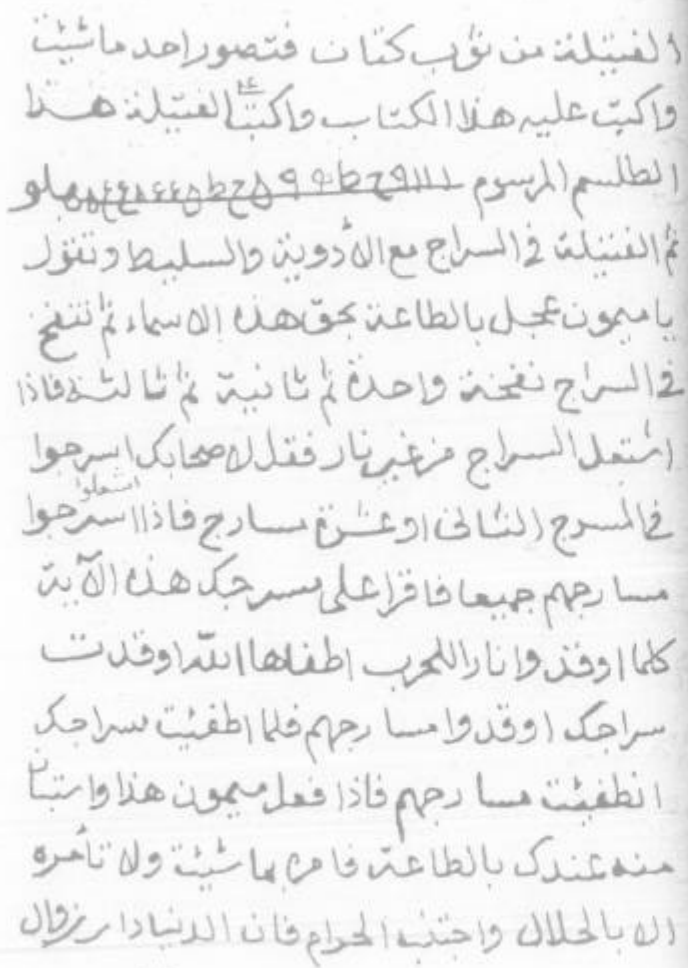 الفتيلة من ثوب كتان فتصور احد ما شئت
واكتب عليه هذا الكتاب واكتب على الفتيلة هذا
الطلسم المرسوم
ثم الفتيلة في السراج مع الأدوية والسليط وتقول
يا ميمون عجل بالطاعة بحق هذه الاسماء ثم تنفخ
في السراج نفخة واحدة ثم ثانية ثم ثالثة فاذا
اشتعل السراج من غير نار فقل لاصحابك اسرجوا
في المسرج الثاني او عشرة مسارج فاذا اسرجوا اشعلوا
مسارجهم جميعا فاقرا على مسرجك هذه الآية
كلما اوقدوا نارا للحرب اطفاها الله اوقدت
سراجك اوقدوا مسارجهم فلما اطفيت سراجك
انطفيت مسارجهم فاذا فعل ميمون هذا
منه عندك بالطاعة فامره بما شيئت ولا تأمره
الا بالحلال واجتنب الحرام فان الدنيا دار زوال